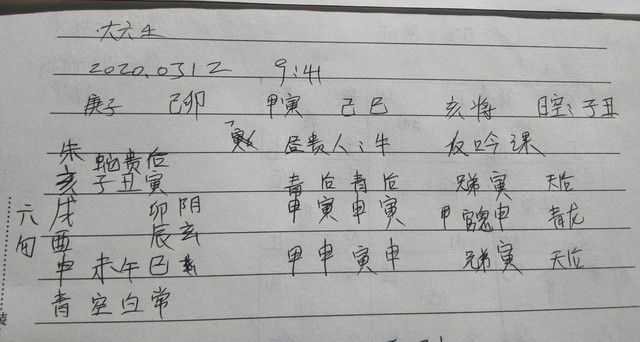 大六壬
2020.0312 9:41
庚子 己卯 甲寅 己巳 亥将 日空:子丑
昼贵人:牛 反吟课
朱 蛇贵后
亥 子丑寅 青后青后 兄弟寅 天后
六旬 戌 卯阴 申寅申寅 甲 官鬼申 青龙
酉 辰玄
申 未午巳 甲申寅申 兄弟寅 天后
青空白常